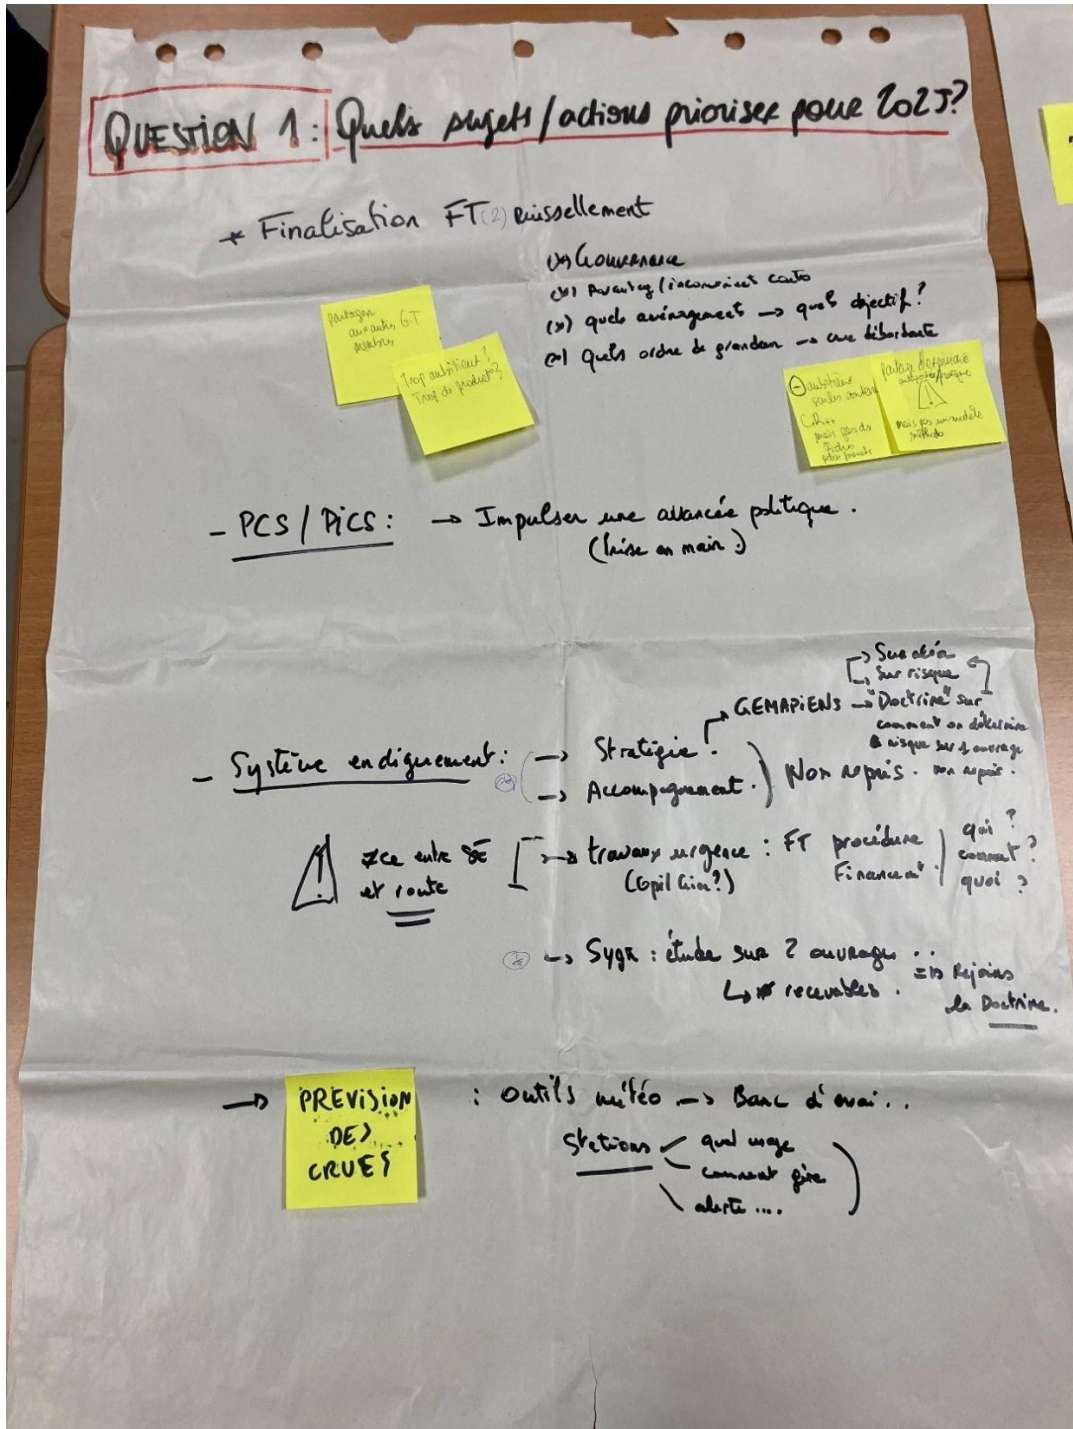 QUESTION 1 : Quels sujets/actions prioriser pour 2025?
* Finalisation FT (2) Ruissellement
(x) Gouvernance
(x) Avantag/inconvénient couts
(x) quels aménagements → quels objectif ?
(x) Quels ordre de grandeur → crue débordante
partager
aux autres G.T
membres
Trop ambitieux ?
Trop de produits ?
⊖ ambitieux
sur les
CR ++
mais pas de
Fiches
partage d'expérience
⚠
mais pas un modèle
méthodo
- PCS / PiCS : → Impulser une avancée politique .
(Prise en main .)
→ Sur aléa
→ Sur risque
GEMAPiENS → "Doctrine" sur
comment on détermine
le risque sur 1 ouvrage
- Système endiguement : → Stratégie .
→ Accompagnement . ) Non repris . non repris .
⚠ ≠ce entre SE
et route
→ travaux urgence : FT procédure
Financemt
qui ?
comment ?
quoi ?
→ Sygr : étude sur 2 ouvrages ..
↳ recevables . => Rejoins
la Doctrine .
→ PREVISION
DES
CRUES
: Outils météo → Banc d'essai ..
Stations
quel usage
comment gère
alerte ....